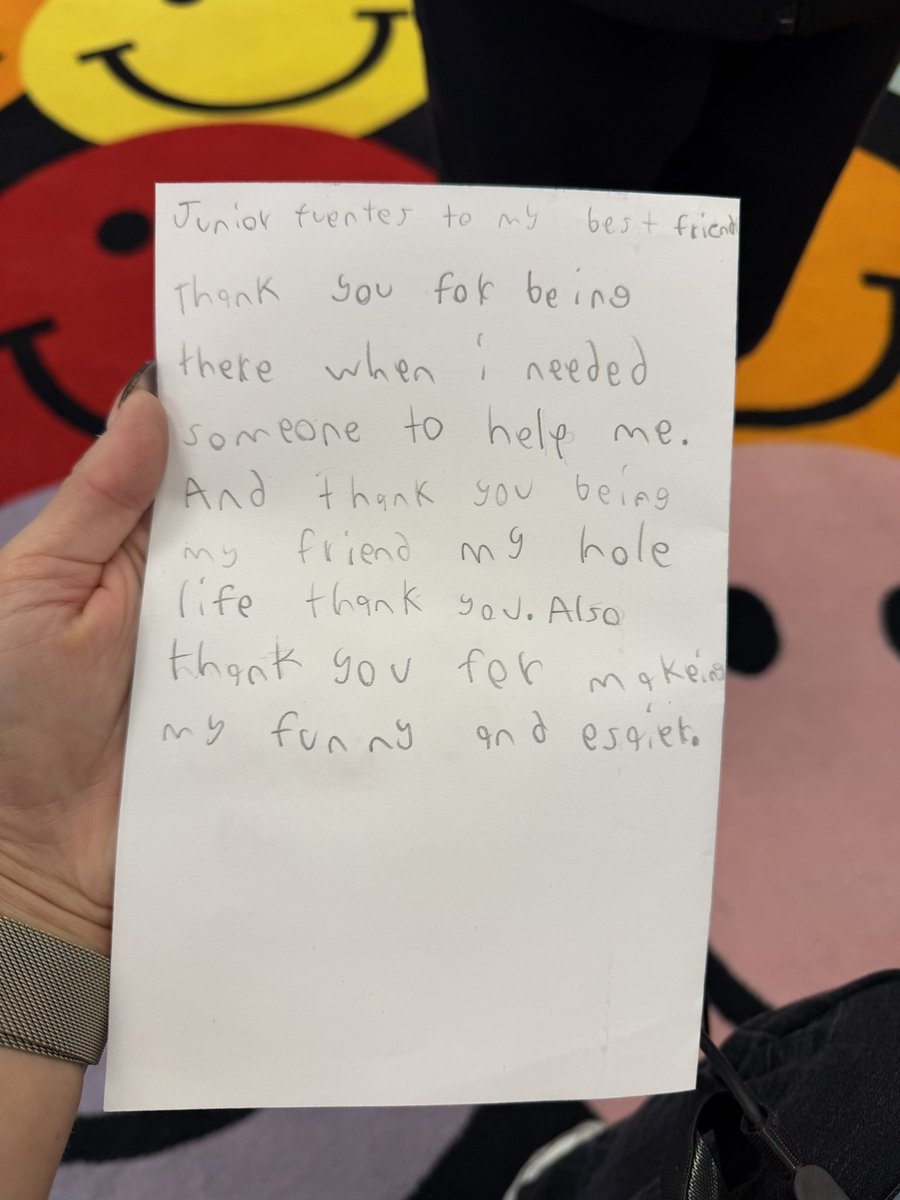 Junior fuentes to my best friend
Thank you for being
there when i needed
someone to help me.
And thank you being
my friend my hole
life thank you. Also
thank you for makeing
my funny and esqiet.